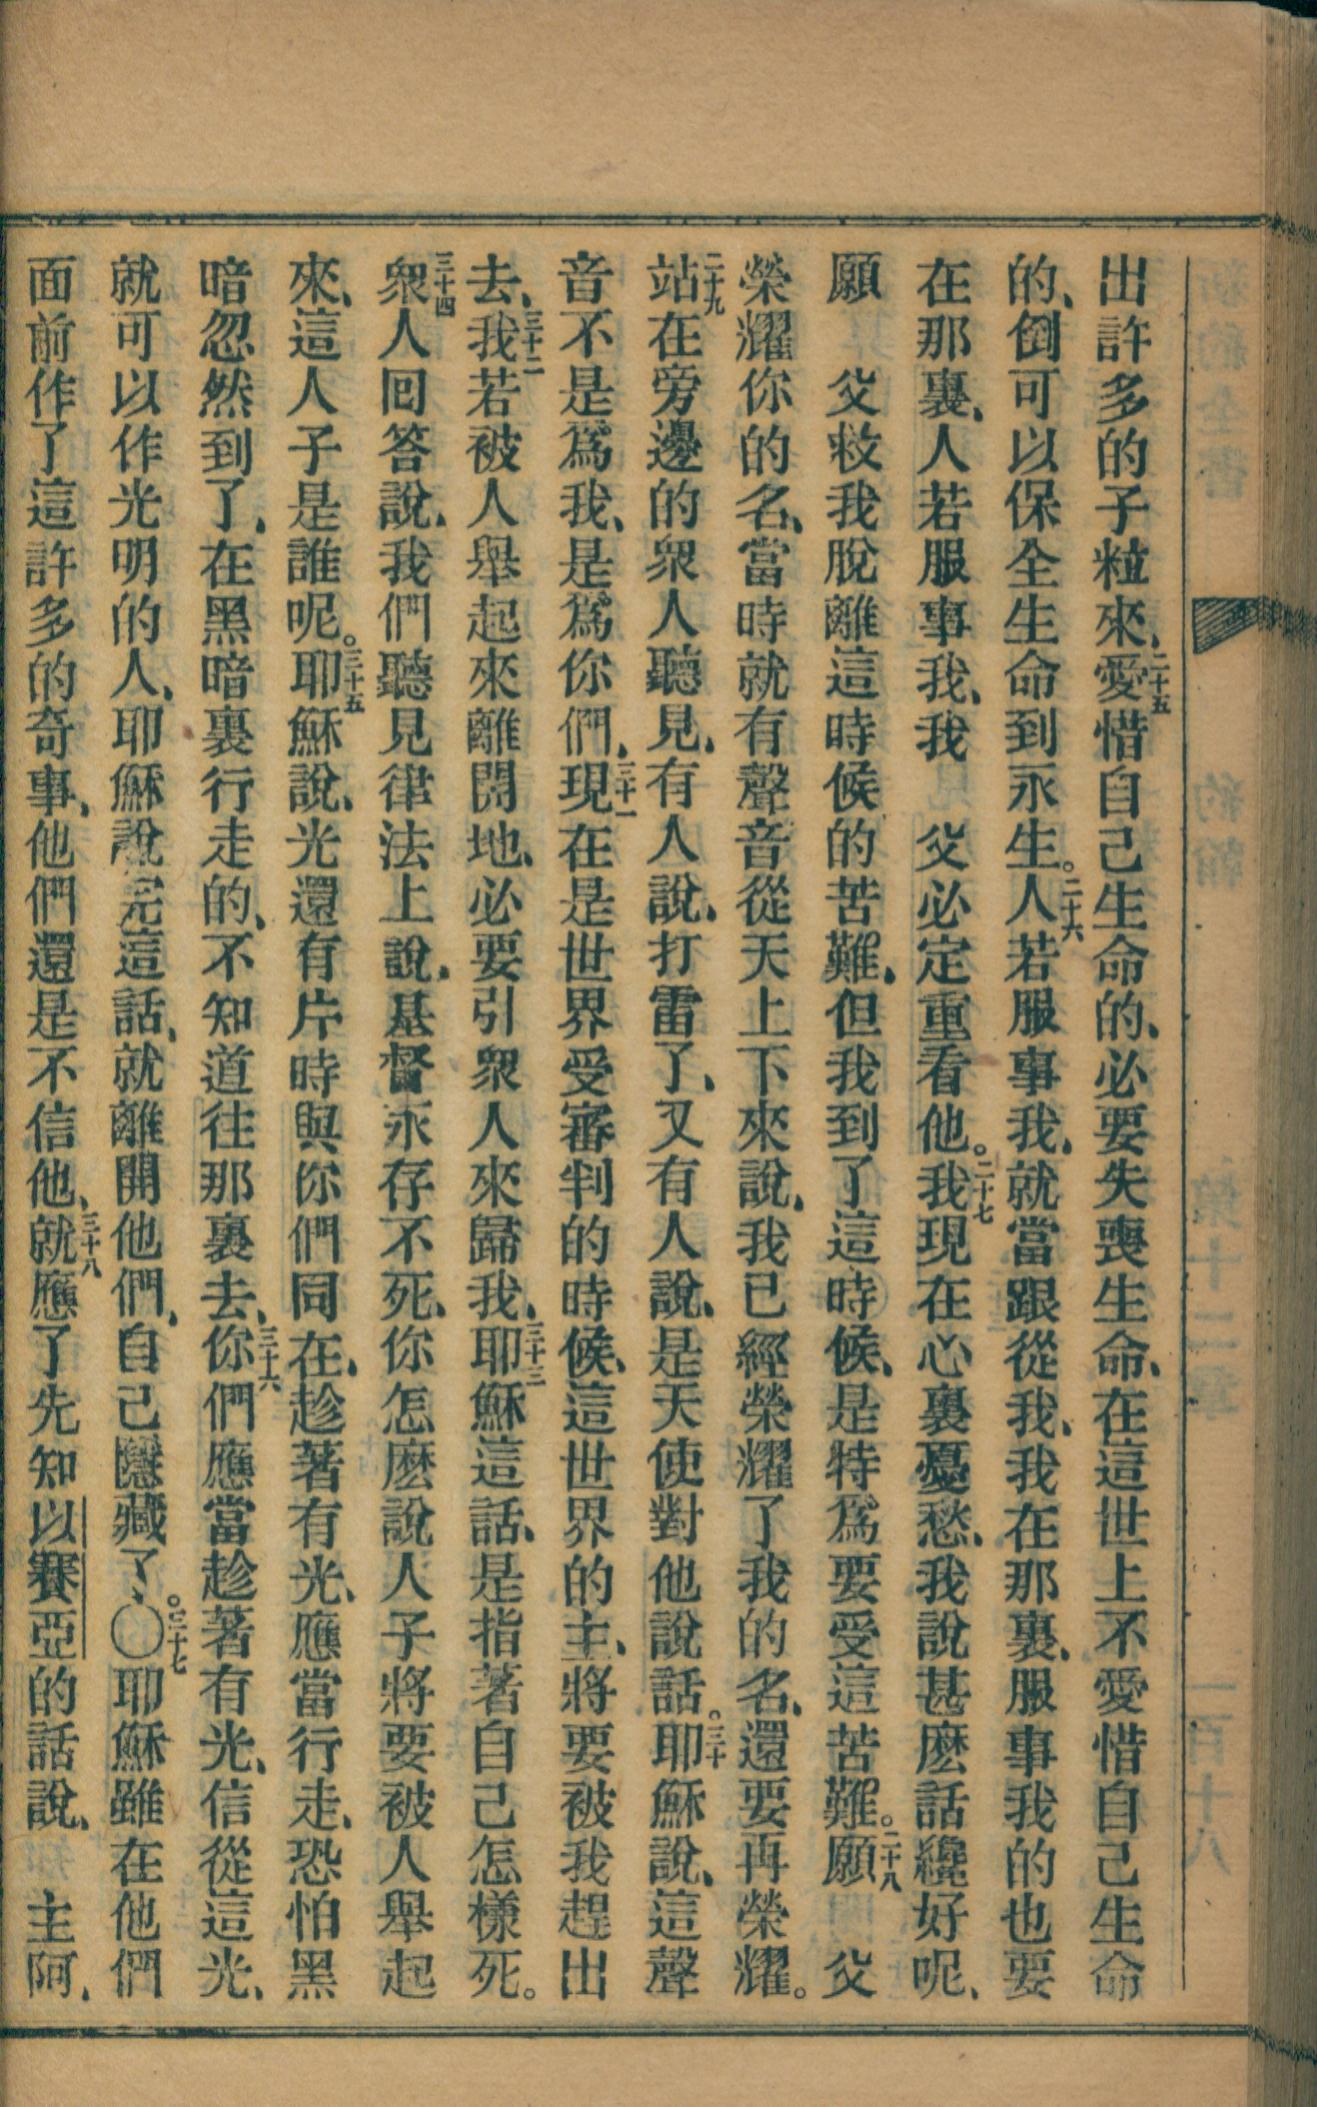 出許多的子粒來、二十五愛惜自己生命的、必要失喪生命、在這世上不愛惜自己生命
的、倒可以保全生命到永生。二十六人若服事我、就當跟從我、我在那裏、服事我的也要
在那裏、人若服事我、我　父必定重看他。二十七我現在心裏憂愁、我說甚麽話纔好呢、
願　父救我脫離這時候的苦難、但我到了這時候、是特爲要受這苦難。二十八願　父
榮耀你的名、當時就有聲音從天上下來說、我已經榮耀了我的名、還要再榮耀。
二十九站在旁邊的衆人聽見、有人說、打雷了、又有人說、是天使對他說話。三十耶穌說、這聲
音不是爲我、是爲你們、三十一現在是世界受審判的時候、這世界的主、將要被我趕出
去、三十二我若被人舉起來離開地、必要引衆人來歸我、三十三耶穌這話、是指著自己怎樣死。
三十四衆人回答說、我們聽見律法上說、基督永存不死、你怎麽說人子將要被人舉起
來、這人子是誰呢。三十五耶穌說、光還有片時與你們同在、趁著有光、應當行走、恐怕黑
暗忽然到了、在黑暗裏行走的、不知道往那裏去、三十六你們應當趁著有光、信從這光、
就可以作光明的人、耶穌說完這話、就離開他們、自己隱藏了、〇三十七耶穌雖在他們
面前作了這許多的奇事、他們還是不信他、三十八就應了先知以賽亞的話說、　主阿、